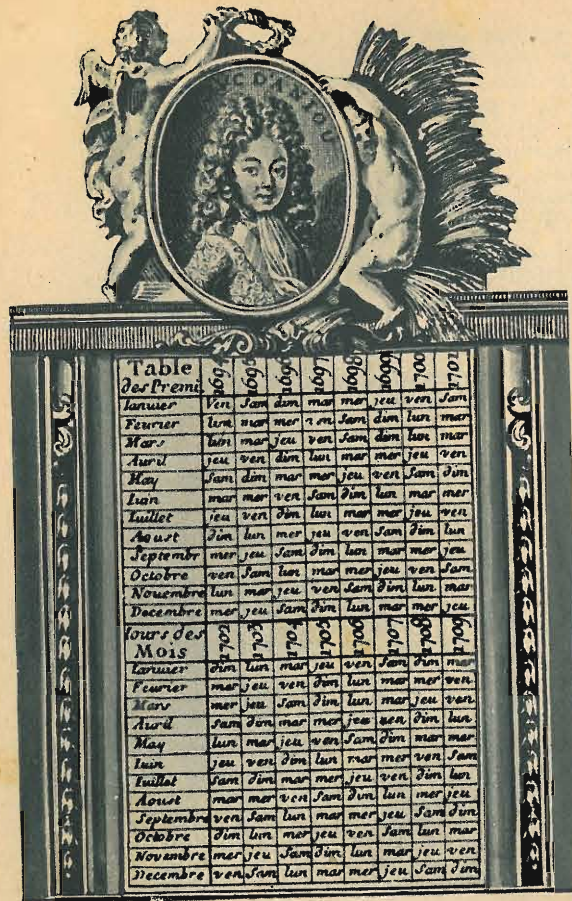 DUC DANIOU
Table des Premi. 1694 1695 1696 1697 1698 1699 1700 1701
Ianuier Ven Sam dim mar mer jeu ven Sam
Feurier lun mar mer ven Sam dim lun mar
Mars lun mar jeu ven Sam dim lun mar
Auril jeu ven dim lun mar mer jeu ven
May Sam dim mar mer jeu ven Sam dim
Iuin mar mer ven Sam dim lun mar mer
Iuillet jeu ven dim lun mar mer jeu ven
Aoust dim lun mer jeu ven Sam dim lun
Septembr mer jeu Sam dim lun mar mer jeu
Octobre ven Sam lun mar mer jeu ven Sam
Nouembre lun mar jeu ven Sam dim lun mar
Decembre mer jeu Sam dim lun mar mer jeu
Iours des Mois 1702 1703 1704 1705 1706 1707 1708 1709
Ianuier dim lun mar jeu ven Sam dim mar
Feurier mer jeu ven dim lun mar mer ven
Mars mer jeu Sam dim lun mar jeu ven
Auril Sam dim mar mer jeu ven dim lun
May lun mar jeu ven Sam dim mar mer
Iuin jeu ven dim lun mar mer ven Sam
Iuillet Sam dim mar mer jeu ven dim lun
Aoust mar mer ven Sam dim lun mer jeu
Septembre ven Sam lun mar mer jeu Sam dim
Octobre dim lun mer jeu ven Sam lun mar
Nouembre mer jeu Sam dim lun mar jeu ven
Decembre ven Sam lun mar mer jeu Sam dim